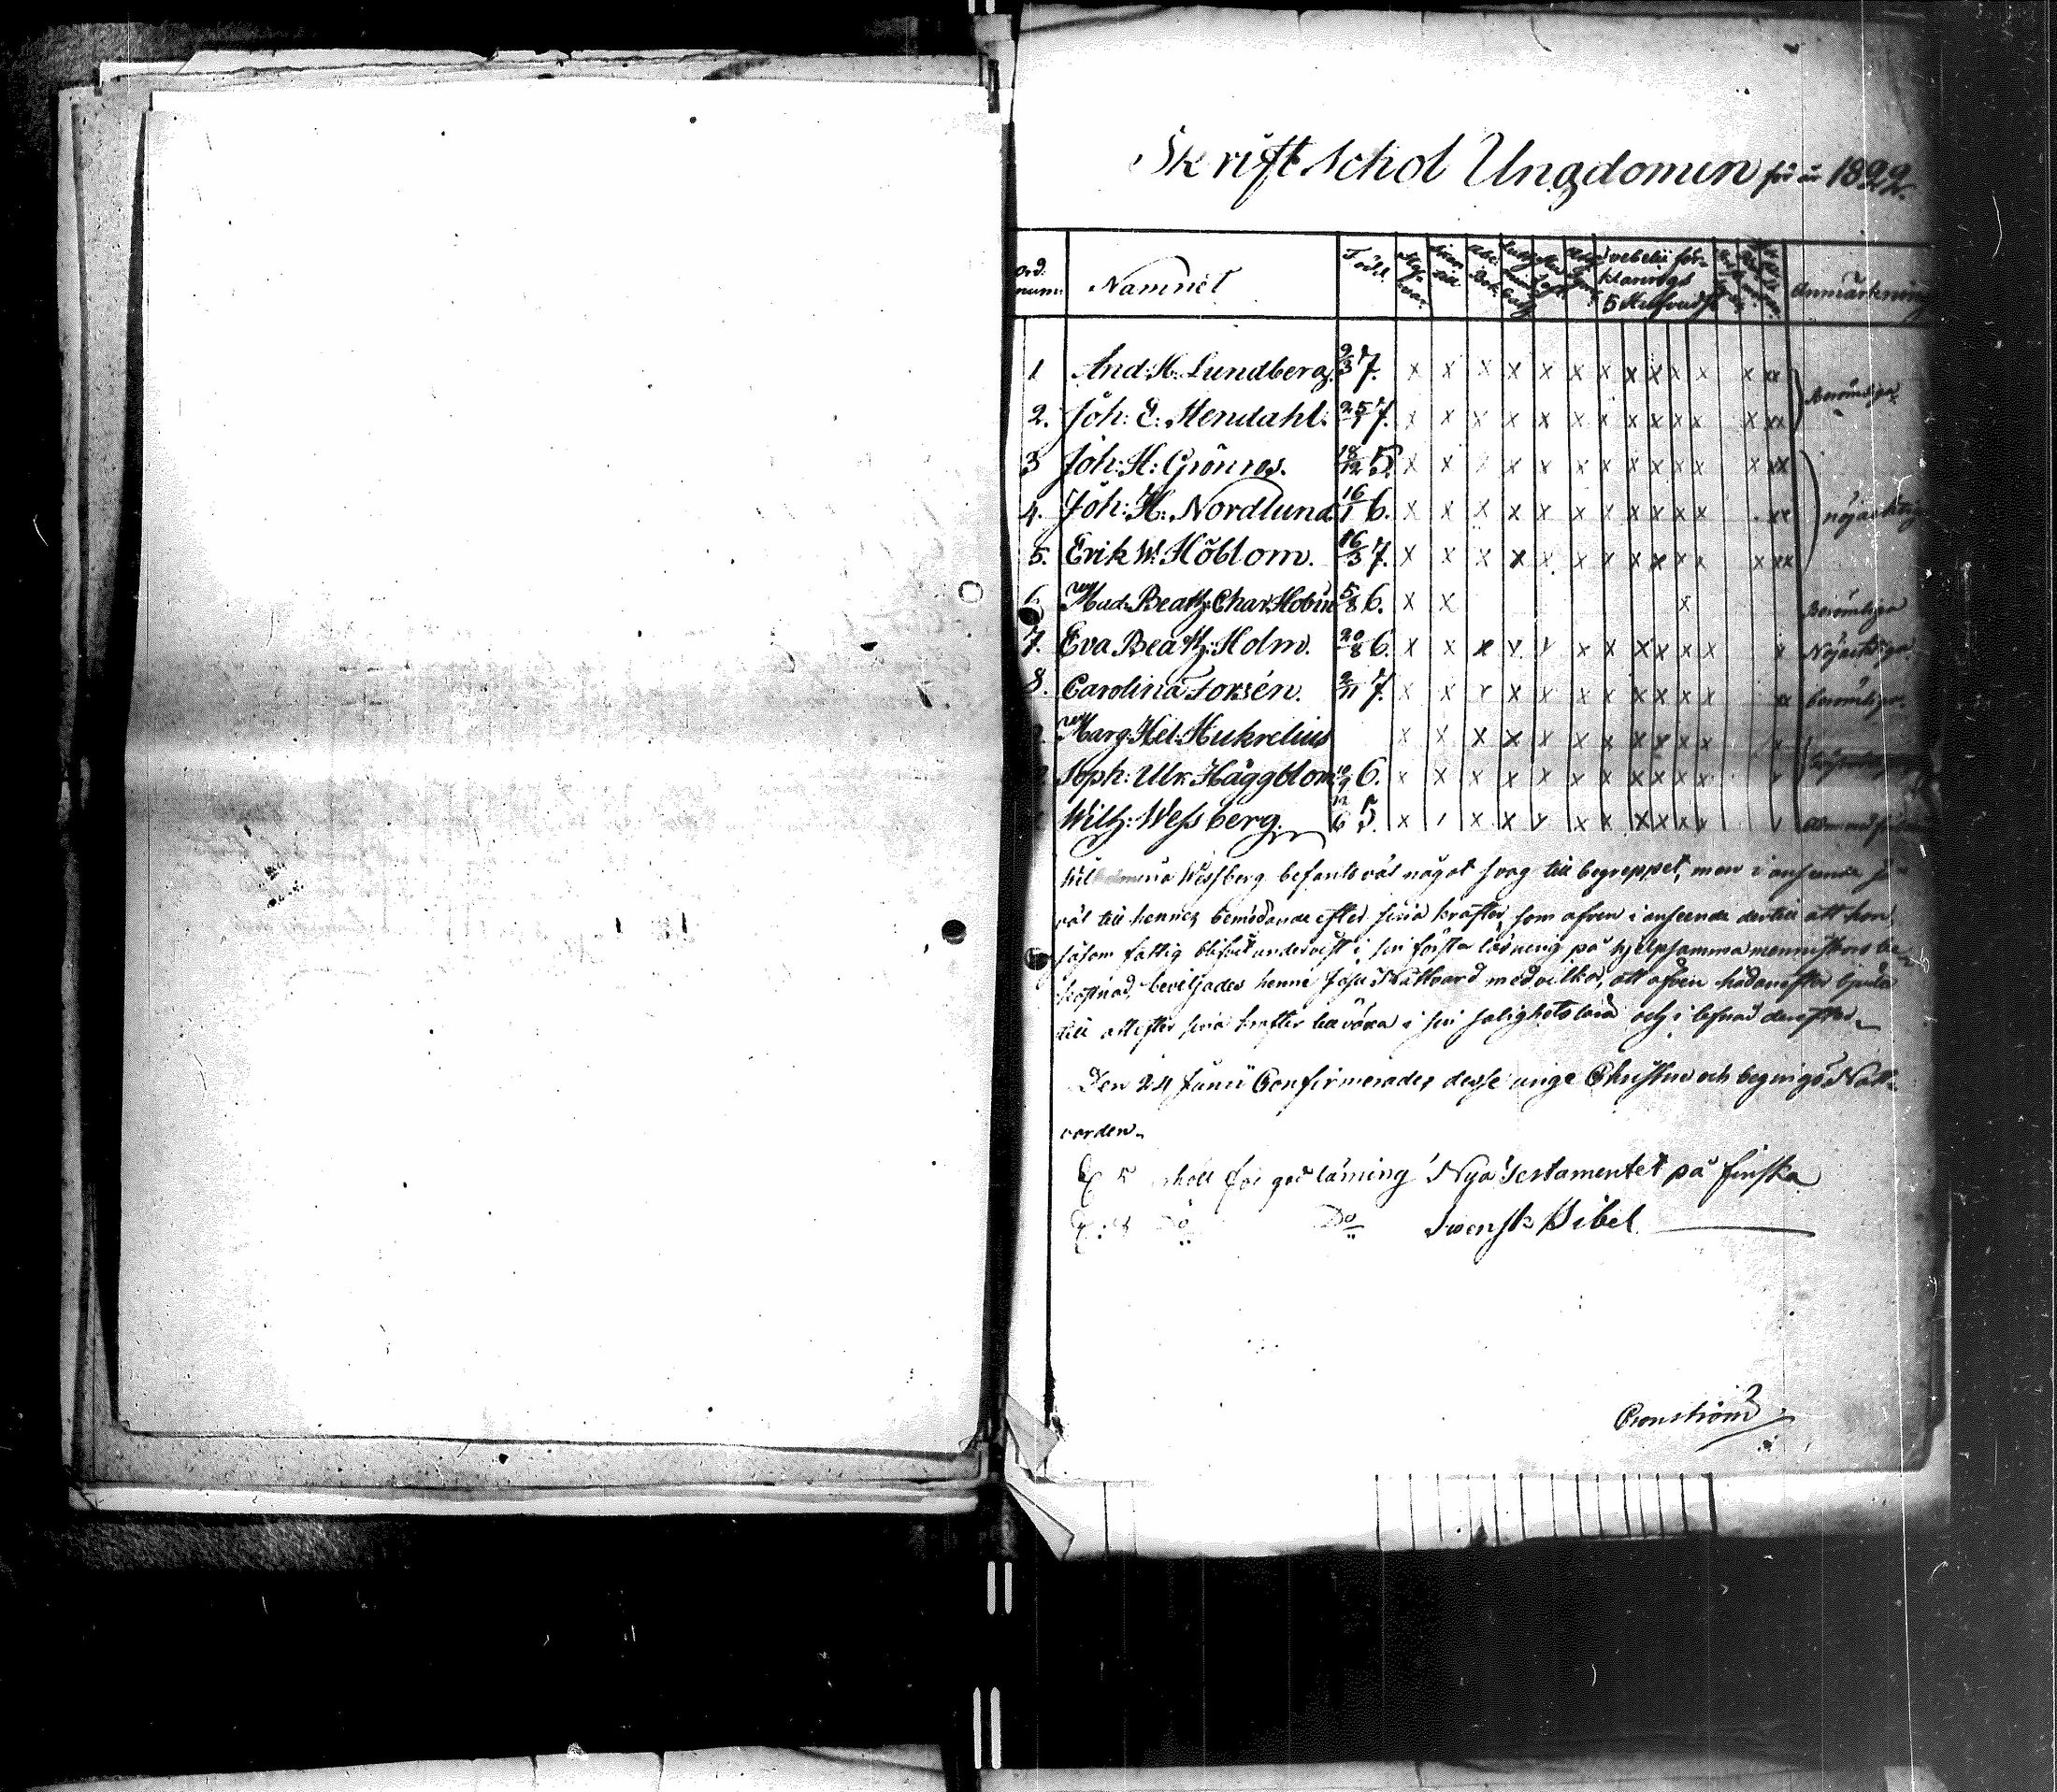 Skriftschol Ungdomen för år 1822.
Ord. num: Namnet Född. Abc Bok. 5 Hufvudst Anmärkning
1 And: H: Lundberg. 9/3 7. x x x x x x x x x x x x xx Berömliga
2. Joh: E: Stendahl. 25/1 7. x x x x x x x x x x x x xx
3 Joh: H: Grönros. 18/12 5. x x x x x x x x x x x x xx
4. Joh: H: Nordlund. 16/1 6. x x x x x x x x x x x xx nöjachtig
5. Erik W. Höblom. 16/3 7. x x x x x x x x x x x x xx
6. Beatz: Char: 5/8 6. x x x Berömliga
7. Eva Beatz: Holm. 20/8 6. x x x x x x x x x x x x Nöjachtiga
8. Carolina Forsén. 2/11 7. x x x x x x x x x x x xx berömliga.
Marg: Hel: x x x x x x x x x x x x
Soph: Ulr: Häggblom 6. x x x x x x x x x x x x
Wilh: Wessberg. 12/6 5. x x x x x x x x x x x x
Wessberg befants väl något svag till begreppet, men i anseende så-
väl till hennes bemödande efter sina krafter, som äfven i anseende dertill att hon
såsom fattig blifvit undervist i sin första läsning på hjelpsamma menniskors be-
kostnad, beviljades henne Jesu Nattvard med vilkor, att äfven hädanefter bjuda
till att efter sina krafter tillväxa i sin salighetslära och i lefnad derefter.
Den 24 Junii Confirmerades desse unge Christne och begingo Natt-
varden.
för god läsning Nya Testamentet på finska
Do Do Svensk Bibel
Cronström